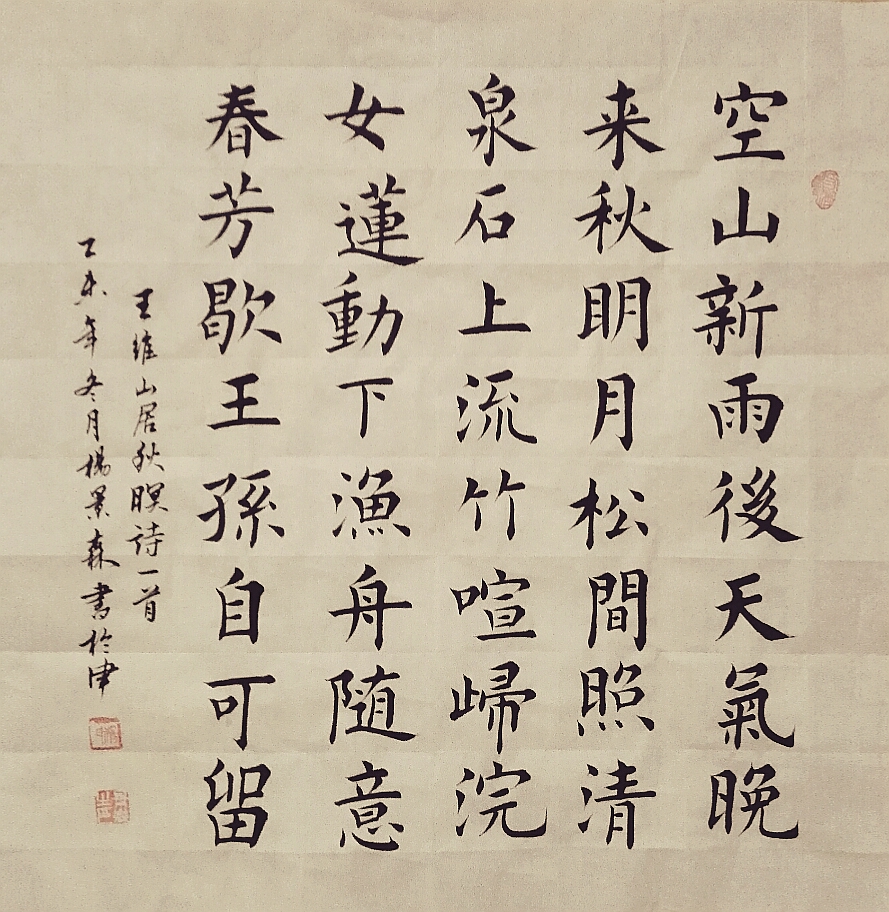 空山新雨後天氣晚
来秋明月松間照清
泉石上流竹喧歸浣
女蓮動下漁舟随意
春芳歇王孫自可留
王維山居秋暝诗一首
乙未年冬月楊景森書於津